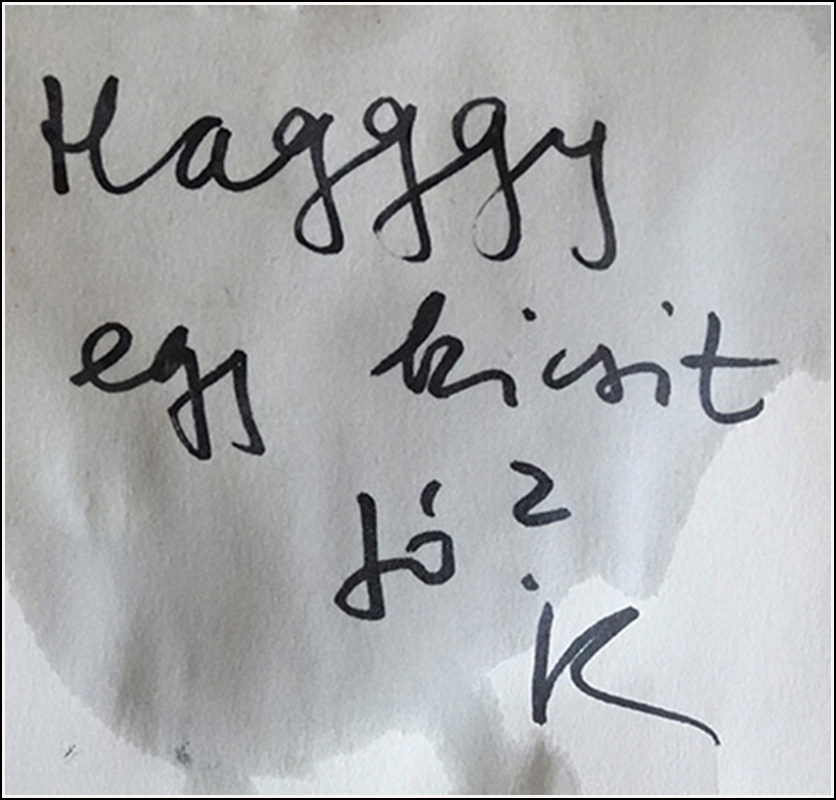 Hagggy
egy kicsit
Jó?
K